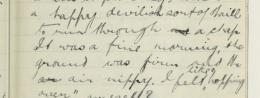 a happy devilish sort of thrill
to run through a chap
It was a fine morning, the
ground was firm and the
air nippy. I felt like "opping
over" myself?